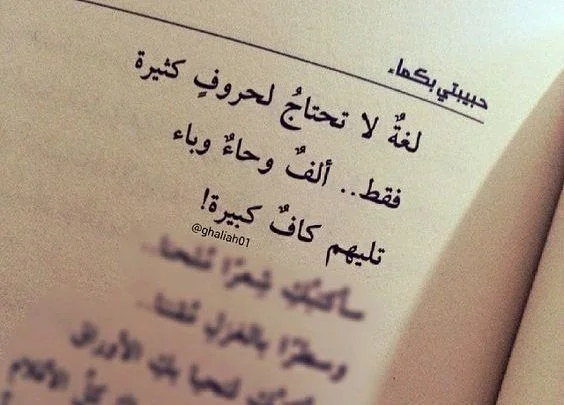 حبيبتي بكماء
لغةٌ لا تحتاجُ لحروفٍ كثيرة
فقط.. ألفٌ وحاءٌ وباء
تليهم كافٌ كبيرة!
@ghaliah01
سأكتبُكِ شِعرًا
وسطرًا بالغزلِ
الأوراق
الأقلام